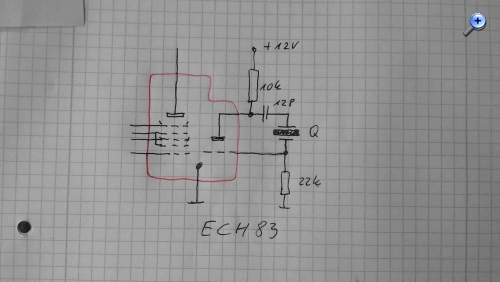 +12V
10k
12p
Q
22k
ECH 83